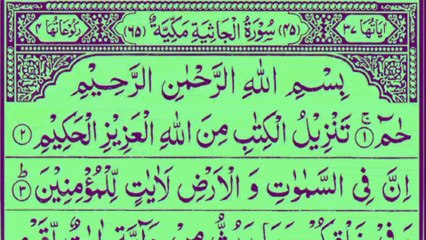 اٰیَاتُهَا ۳۷ (۴۵) سُوْرَةُ الْجَاثِيَةِ مَكِّيَّةٌ (۶۵) رُكُوْعَاتُهَا ۴
بِسْمِ اللّٰهِ الرَّحْمٰنِ الرَّحِيْمِ
حٰمٓ ۚ﴿۱﴾ تَنْزِيْلُ الْكِتٰبِ مِنَ اللّٰهِ الْعَزِيْزِ الْحَكِيْمِ ﴿۲﴾
اِنَّ فِى السَّمٰوٰتِ وَ الْاَرْضِ لَاٰيٰتٍ لِّلْمُؤْمِنِيْنَ ؕ﴿۳﴾